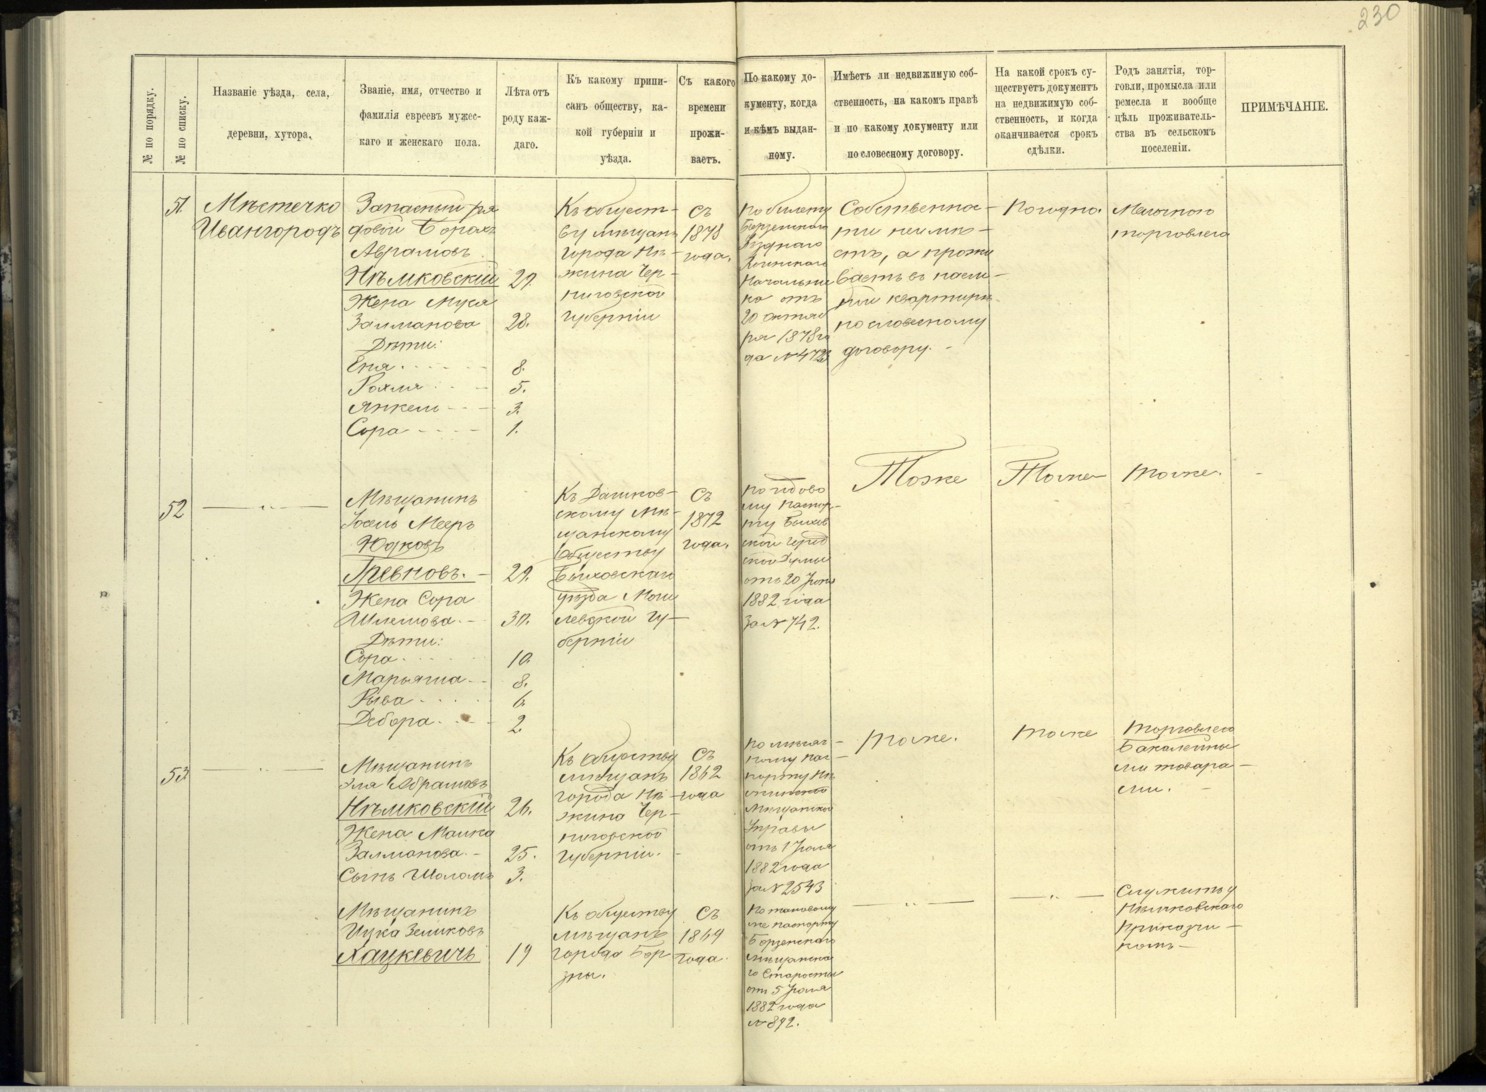 230
№ по порядку.
№ по списку.
Названіе уѣзда, села,
деревни, хутора.
Званіе, имя, отчество и
фамилія евреевъ мужес-
каго и женскаго пола.
Лѣта отъ
роду каж-
даго.
Къ какому припи-
санъ обществу, ка-
кой губерніи и
уѣзда.
Съ какого
времени
прожи-
ваетъ.
По какому до-
кументу, когда
и кѣмъ выдан-
ному.
Имѣетъ ли недвижимую соб-
ственность, на какомъ правѣ
и по какому документу или
по словесному договору.
На какой срокъ су-
ществуетъ документъ
на недвижимую соб-
ственность, и когда
оканчивается срокъ
сдѣлки.
Родъ занятія, тор-
говли, промысла или
ремесла и вообще
цѣль проживатель-
ства въ сельскомъ
поселеніи.
ПРИМѢЧАНІЕ.
51
Мѣстечко
Ивангородъ
Запасный ря
довой Борохъ
Аврамовъ
Нѣмковскій 29
Жена Муся
Залманова 28.
Дѣти:
Еня 8
Рохля 5.
Янкель 3
Сора 1.
Къ общест-
ву мѣщанъ
города Нѣ-
жина Чер-
ниговской
губерніи
Съ
1873
года.
По билету
Борзенскаго
Уѣзднаго
Воинскаго
Начальни
ка отъ
20 октяб
ря 1878 го
да № 4723
Собственнос-
ти не имѣ-
етъ, а прожи
ваетъ въ наем-
ной квартирѣ
по словесному
договору.
Погодно.
Мелочною
торговлею
52
Мѣщанинъ
Іосель Мееръ
Юдковъ
Гревновъ. 29.
Жена Сора
Шлемова. 30.
Дѣти:
Сора 10
Марьяша 8.
Рыва 6
Дебора 2
Къ Дашков-
скому мѣ-
щанскому
обществу
Быховскаго
уѣзда Моги
левской гу-
берніи
Съ
1872
года.
По годово
му паспор-
ту Быхов
ской город
ской Думы
отъ 20 Іюня
1882 года
за № 742.
Тоже
Тоже
тоже.
53
Мѣщанинъ
Эля Абрамовъ
Нѣмковскій 26.
Жена Малка
Залманова 25.
Сынъ Шоломъ 3.
Къ обществу
мѣщанъ
города Нѣ-
жина Чер-
ниговской
губерніи.
Съ
1862
года
По мѣсяч-
ному пас-
порту Нѣ
жинской
Мѣщанской
Управы
отъ 1 Іюля
1882 года
за № 2543
тоже.
тоже
Торговлею
Бакалейны
ми товара-
ми.
Мѣщанинъ
Ицка Зеликовъ
Хацкевичъ 19
Къ обществу
мѣщанъ
города Бор
зны.
Съ
1864
года.
По таковому
же паспорту
Борзенскаго
мѣщанска
го Старосты
отъ 5 Іюля
1882 года
№ 892.
Служитъ у
Нѣмковскаго
Приказчи-
комъ